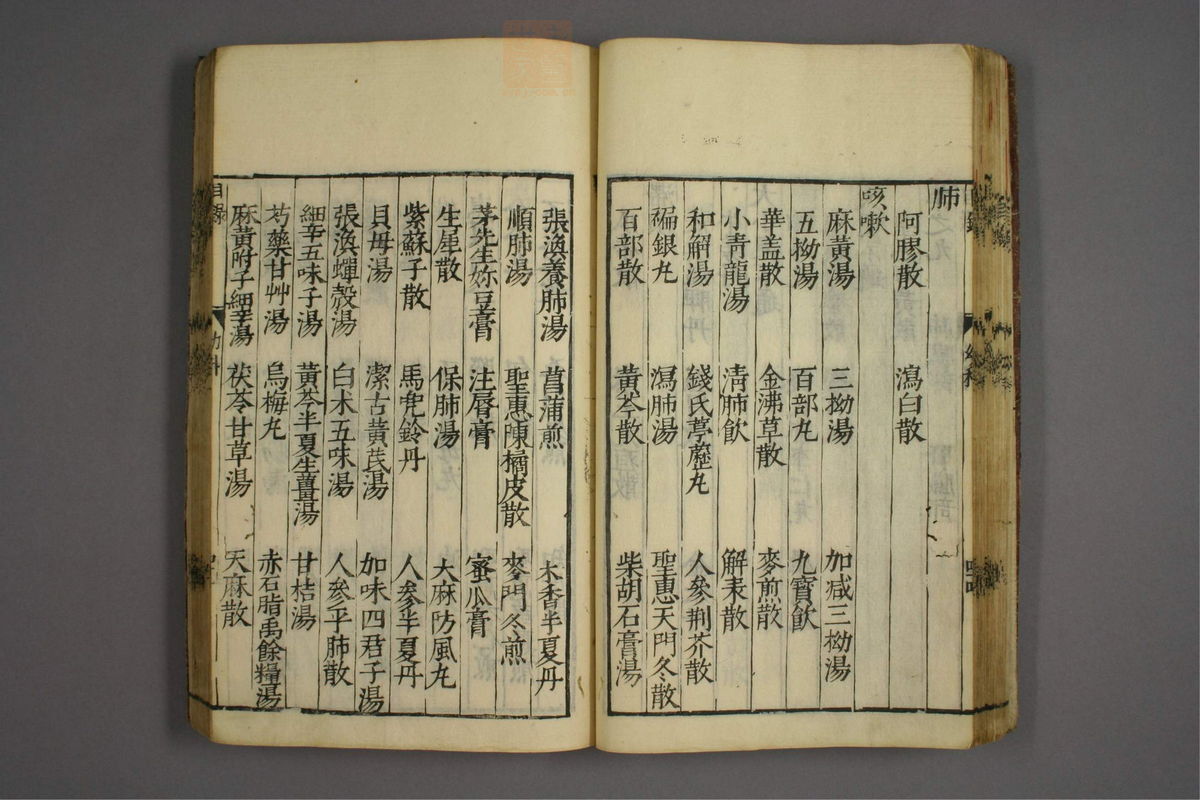 肺
阿膠散 瀉白散
咳嗽
麻黃湯 三拗湯 加減三拗湯
五拗湯 百部丸 九寶飲
華盖散 金沸草散 麥煎散
小青龍湯 清肺飲 解表散
和解湯 錢氏葶藶丸 人參荆芥散
褊銀丸 瀉肺湯 聖惠天門冬散
百部散 黃芩散 柴胡石膏湯
張渙養肺湯 菖蒲煎 木香半夏丹
順肺湯 聖惠陳橘皮散 麥門冬煎
茅先生奶豆膏 注脣膏 蜜瓜膏
生犀散 保肺湯 大麻防風丸
紫蘇子散 馬兜鈴丹 人參半夏丹
貝母湯 潔古黃芪湯 加味四君子湯
張渙蟬殼湯 白术五味湯 人參平肺散
細辛五味子湯 黃芩半夏生薑湯 甘桔湯
芍藥甘艸湯 烏梅丸 赤石脂禹餘糧湯
麻黃附子細辛湯 茯苓甘草湯 天麻散
目錄